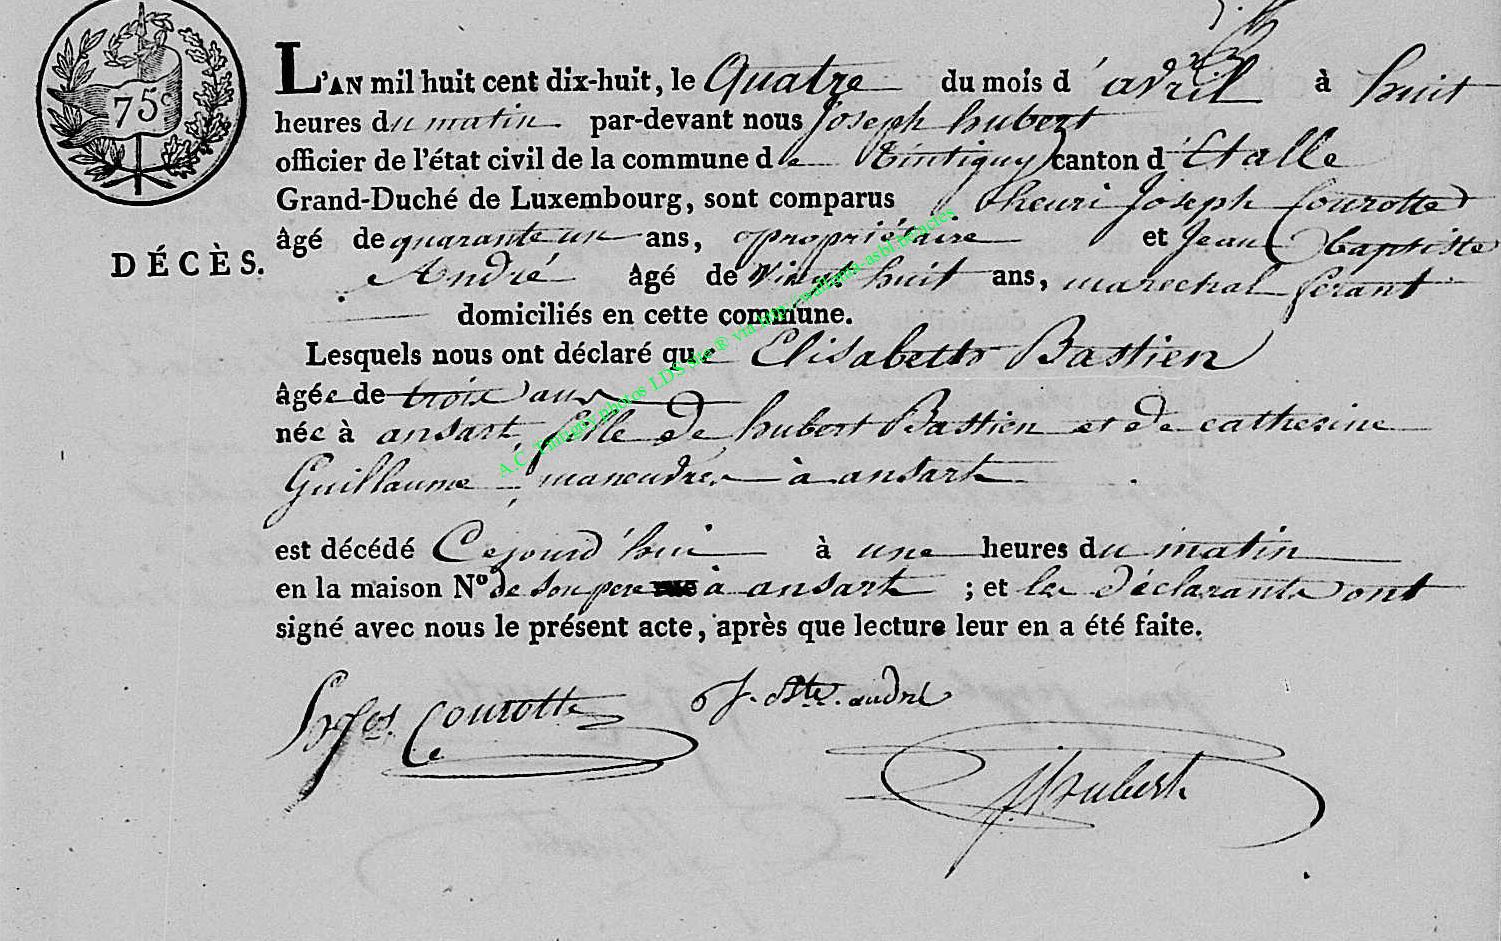 75c
L'AN mil huit cent dix-huit, le Quatre du mois d'avril à huit
heures du matin par-devant nous Joseph hubert
officier de l'état civil de la commune de tintigny canton d'Etalle
Grand-Duché de Luxembourg, sont comparus henri Joseph Courotte
DÉCÈS.
âgé de quarante un ans, propriétaire et Jean Baptiste
André âgé de vingt huit ans, marechal ferant
domiciliés en cette commune.
Lesquels nous ont déclaré que Elisabeth Bastien
âgée de trois ans
née à ansart fille de hubert Bastien et de catherine
Guillaume, à ansart
est décédé Cejourd'hui à une heures du matin
en la maison N° de son pere à ansart ; et les déclarants ont
signé avec nous le présent acte, après que lecture leur en a été faite.
Courotte J. Bte. andré
J hubert
A.C. Tintigny photos LDS site ® via http://wallonia-asbl.be/actes